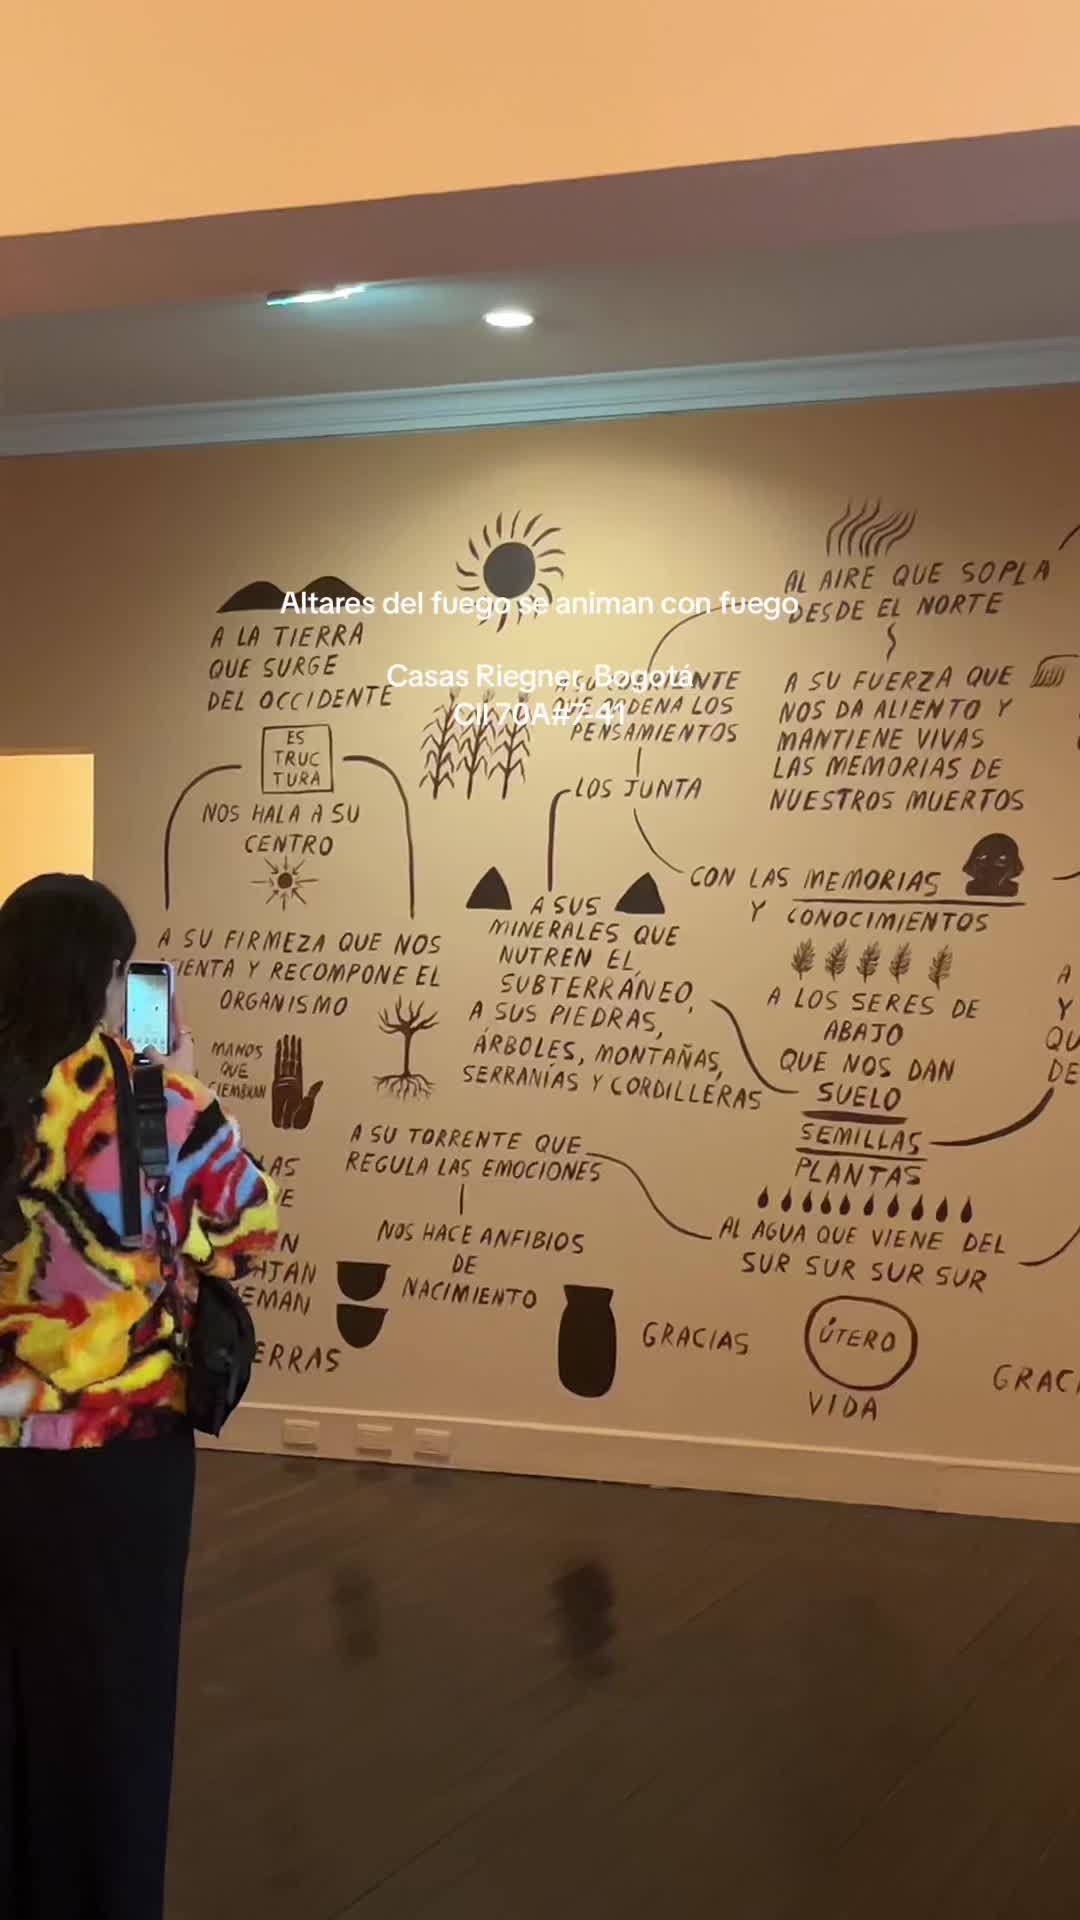 Altares del fuego se animan con fuego
Casas Riegner, Bogotá
Cll 70A#7-41
A LA TIERRA
QUE SURGE
DEL OCCIDENTE
ES
TRUC
TURA
NOS HALA A SU
CENTRO
A SU FIRMEZA QUE NOS
Y RECOMPONE EL
ORGANISMO
MANOS
QUE
SIEMBRAN
A SU CORRIENTE
QUE ORDENA LOS
PENSAMIENTOS
LOS JUNTA
A SUS
MINERALES QUE
NUTREN EL
SUBTERRÁNEO,
A SUS PIEDRAS,
ÁRBOLES, MONTAÑAS,
SERRANÍAS Y CORDILLERAS
A SU TORRENTE QUE
REGULA LAS EMOCIONES
NOS HACE ANFIBIOS
DE
NACIMIENTO
GRACIAS
AL AIRE QUE SOPLA
DESDE EL NORTE
A SU FUERZA QUE
NOS DA ALIENTO Y
MANTIENE VIVAS
LAS MEMORIAS DE
NUESTROS MUERTOS
CON LAS MEMORIAS
Y CONOCIMIENTOS
A LOS SERES DE
ABAJO
QUE NOS DAN
SUELO
SEMILLAS
PLANTAS
AL AGUA QUE VIENE DEL
SUR SUR SUR SUR
ÚTERO
VIDA